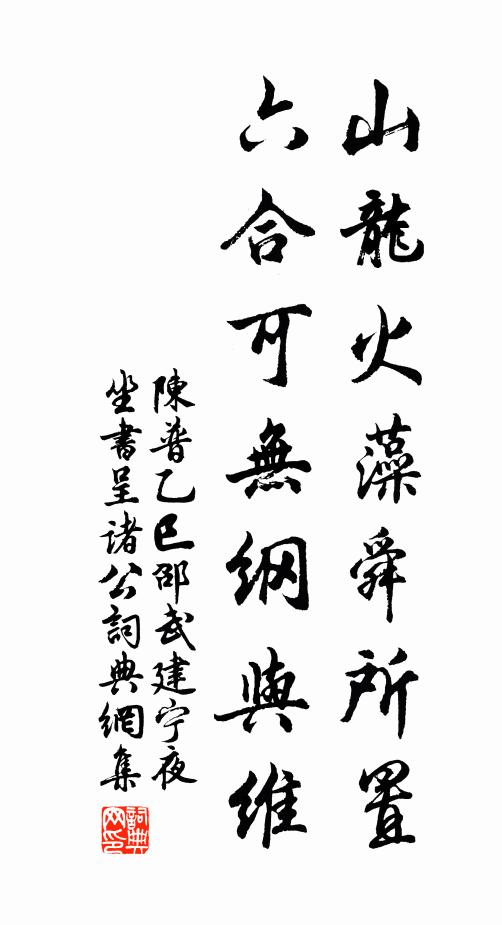 山龍火藻舜所置
六合可無綱與維
陳普乙巳邵武建宁夜
坐書呈諸公詞典網集
詞典网印